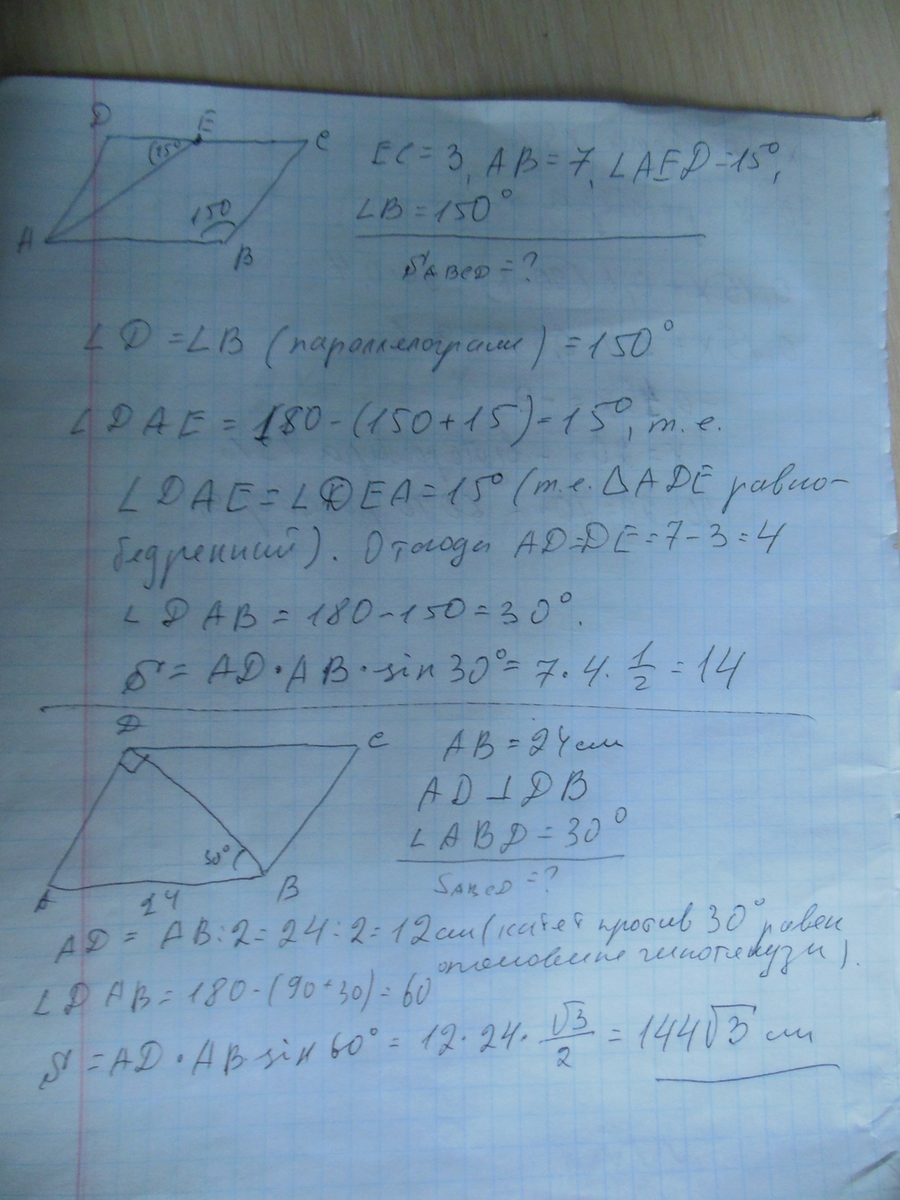 D E C
15°
150
A B
EC = 3, AB = 7, ∠AED = 15°,
∠B = 150°
S ABCD = ?
∠D = ∠B (параллелограмм) = 150°
∠DAE = 180 - (150 + 15) = 15°, т.е.
∠DAE = ∠DEA = 15° (т.е. △ADE равно-
бедренный). Отсюда AD = DE = 7 - 3 = 4
∠DAB = 180 - 150 = 30°.
S = AD · AB · sin 30° = 7 · 4 · 1/2 = 14
D C
30°
A 24 B
AB = 24 см
AD ⊥ DB
∠ABD = 30°
S ABCD = ?
AD = AB : 2 = 24 : 2 = 12 см (катет против 30° равен
половине гипотенузы).
∠DAB = 180 - (90 + 30) = 60
S = AD · AB · sin 60° = 12 · 24 · √3/2 = 144√3 см